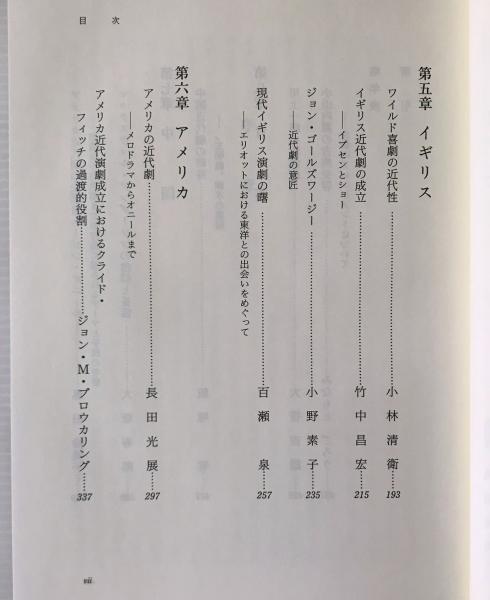 目次
第五章 イギリス
ワイルド喜劇の近代性……小林清衛……193
イギリス近代劇の成立……竹中昌宏……215
──イプセンとショー
ジョン・ゴールズワージー……小野素子……235
──近代劇の意匠
現代イギリス演劇の曙……百瀬泉……257
──エリオットにおける東洋との出会いをめぐって
第六章 アメリカ
アメリカの近代劇……長田光展……297
──メロドラマからオニールまで
アメリカ近代演劇成立におけるクライド・
フィッチの過渡的役割……ジョン・M・ブロウカリング……337
vii